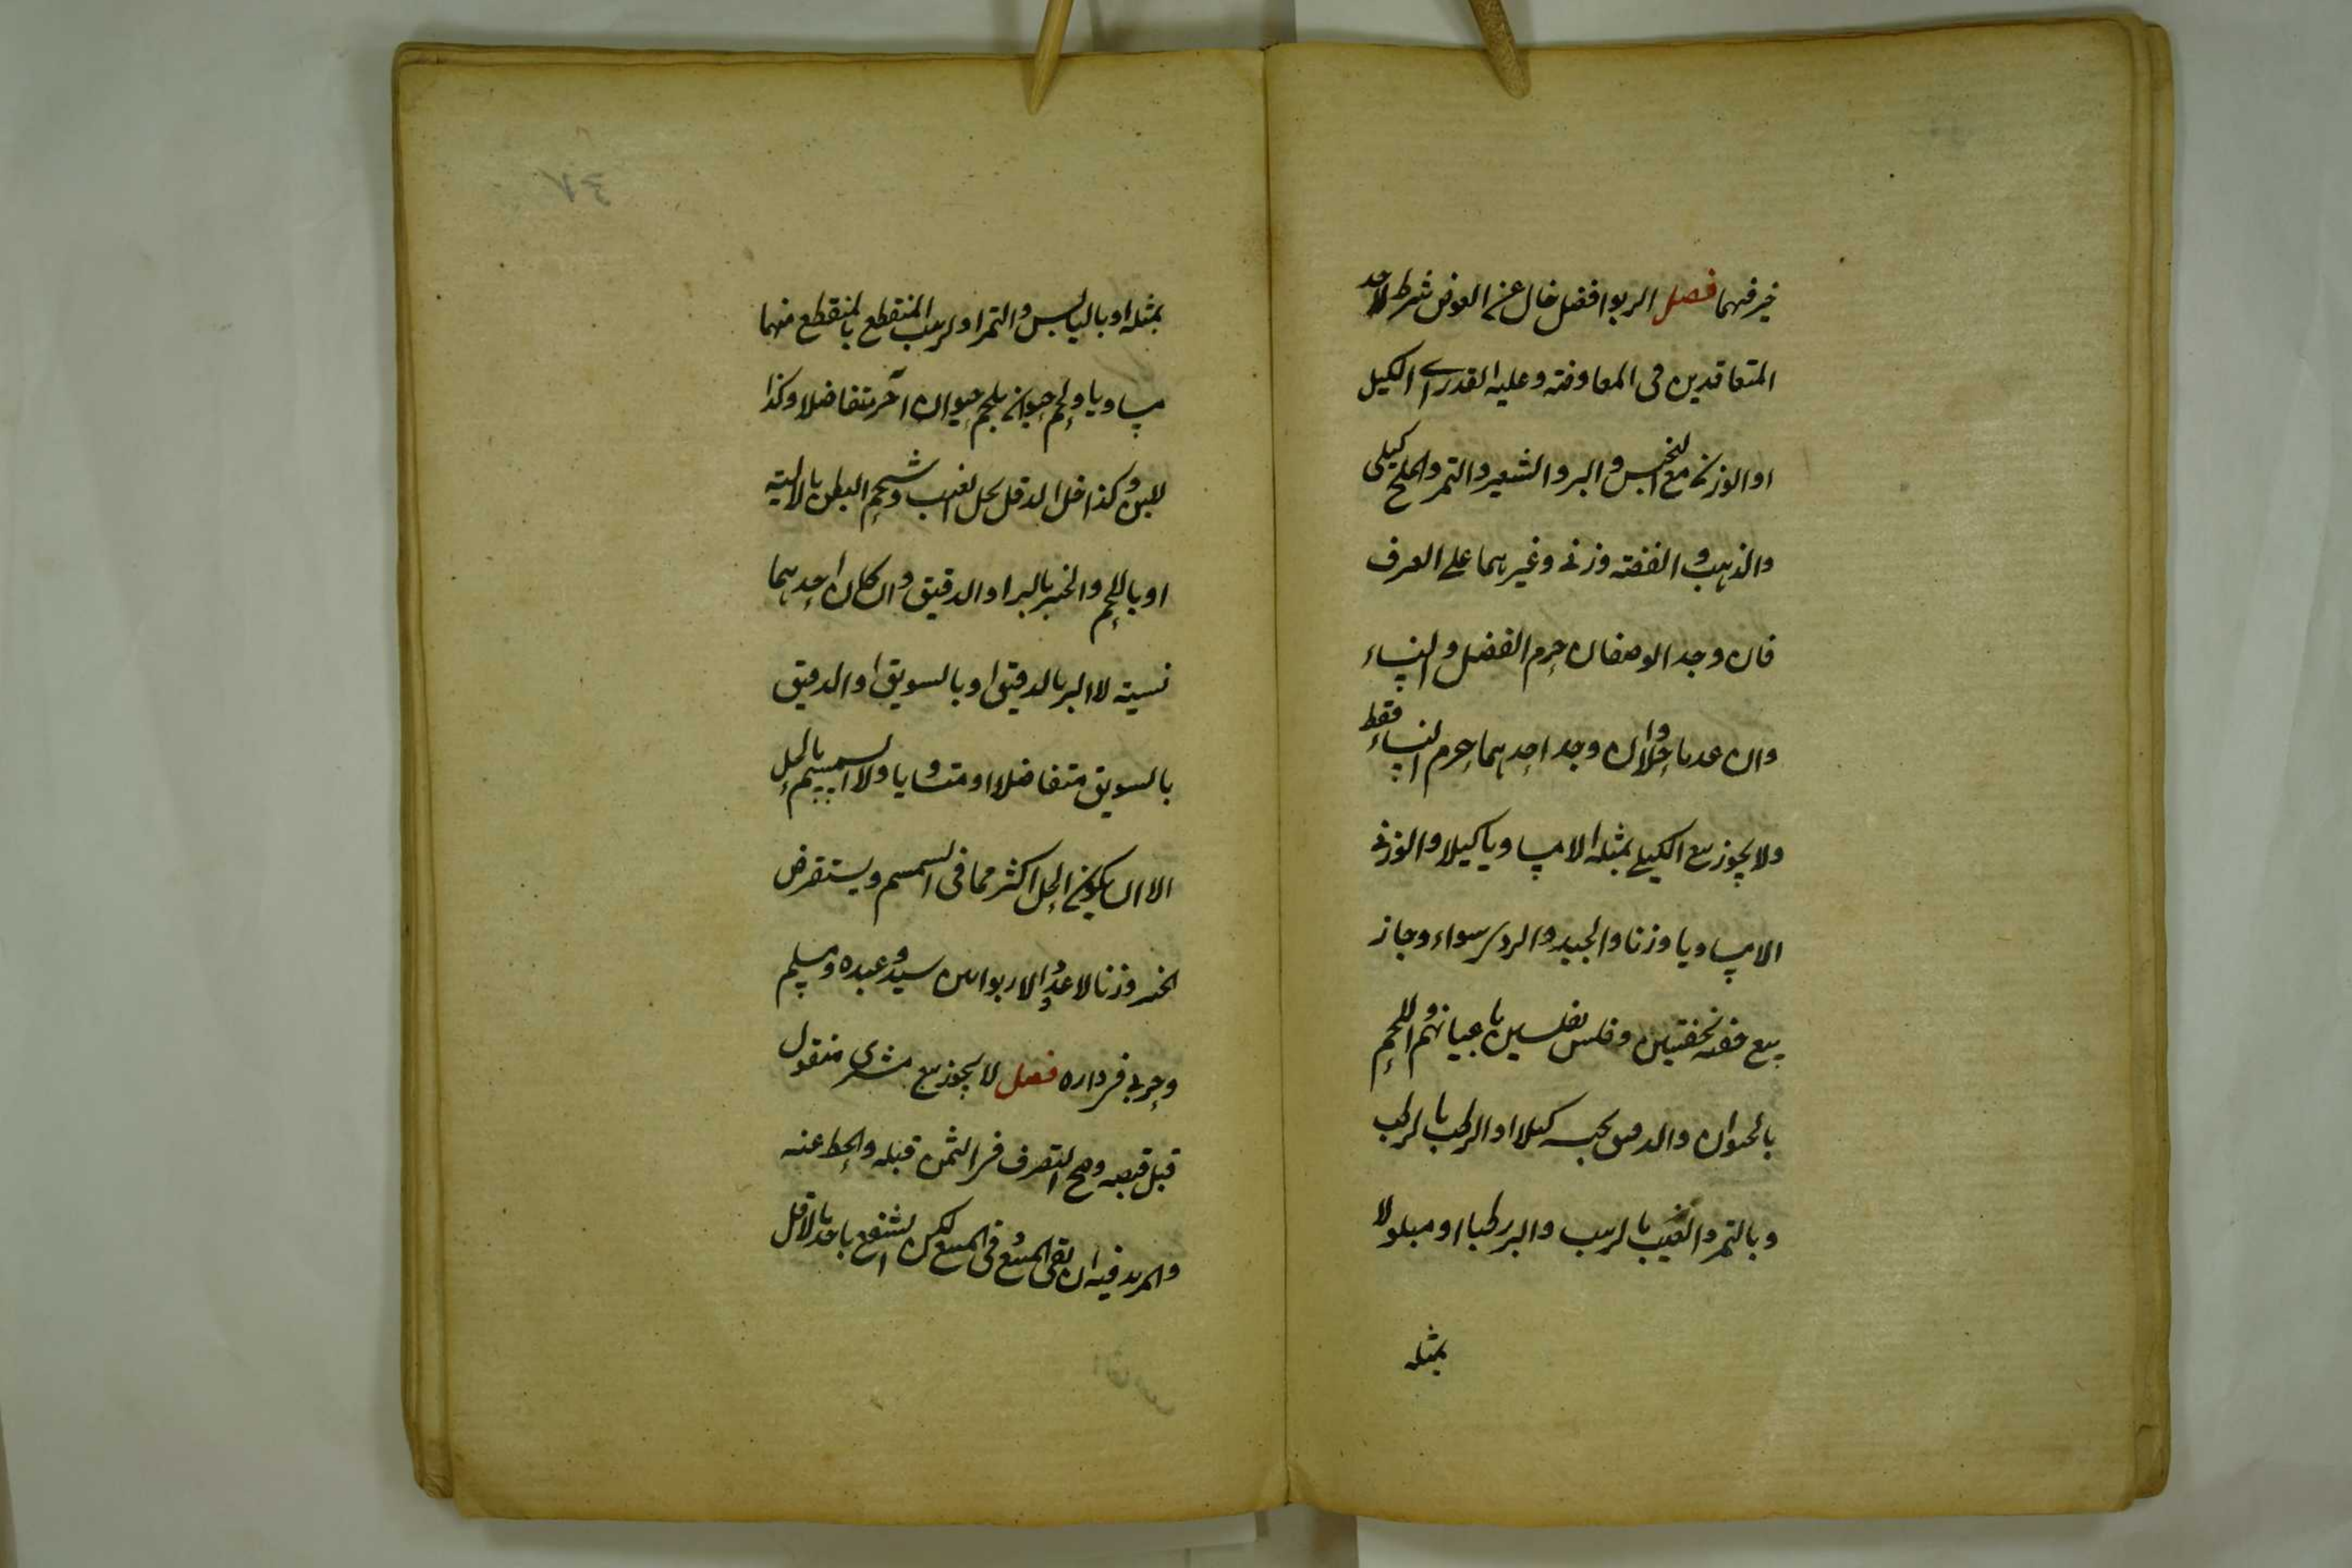 خير فيهما فصل الربوا فضل خال عن العوض شرط لاحد
المتعاقدين فى المعاوضة وعليه القدر اى الكيل
او الوزن مع الجنس والبر والشعير والتمر والملح كيلى
والذهب والفضة وزنى وغيرهما على العرف
فان وجد الوصفان حرم الفضل والنساء
وان عدما حلا وان وجد احدهما حرم النساء فقط
ولا يجوز بيع الكيلى بمثله الا مساويا كيلا والوزنى
الا مساويا وزنا والجيد والردى سواء وجاز
بيع حفنة بحفنتين وفلس بفلسين باعيانهم واللحم
بالحيوان والدقيق بجنسه كيلا والرطب بالرطب
وبالتمر والعنب بالزبيب والبر رطبا او مبلولا
بمثله
بمثله او باليابس والتمر او الزبيب المنقطع بالمنقطع منهما
مساويا ولحم حيوان بلحم حيوان آخر متفاضلا وكذا
اللبن وكذا خل الدقل بخل العنب وشحم البطن بالالية
او باللحم والخبز بالبر او الدقيق وان كان احدهما
نسية لا البر بالدقيق او بالسويق او الدقيق
بالسويق متفاضلا او متساويا ولا السمسم بالحل
الا ان يكون الحل اكثر مما فى السمسم ويستقرض
الخبز وزنا لا عددا ولا ربوا بين سيد وعبده ومسلم
وحربى فى داره فصل لا يجوز بيع مشرى منقول
قبل قبضه وصح التصرف فى الثمن قبله والحط عنه
والمزيد فيه ان بقى المبيع وفى المبيع لكن الشفيع ياخذ بالاقل